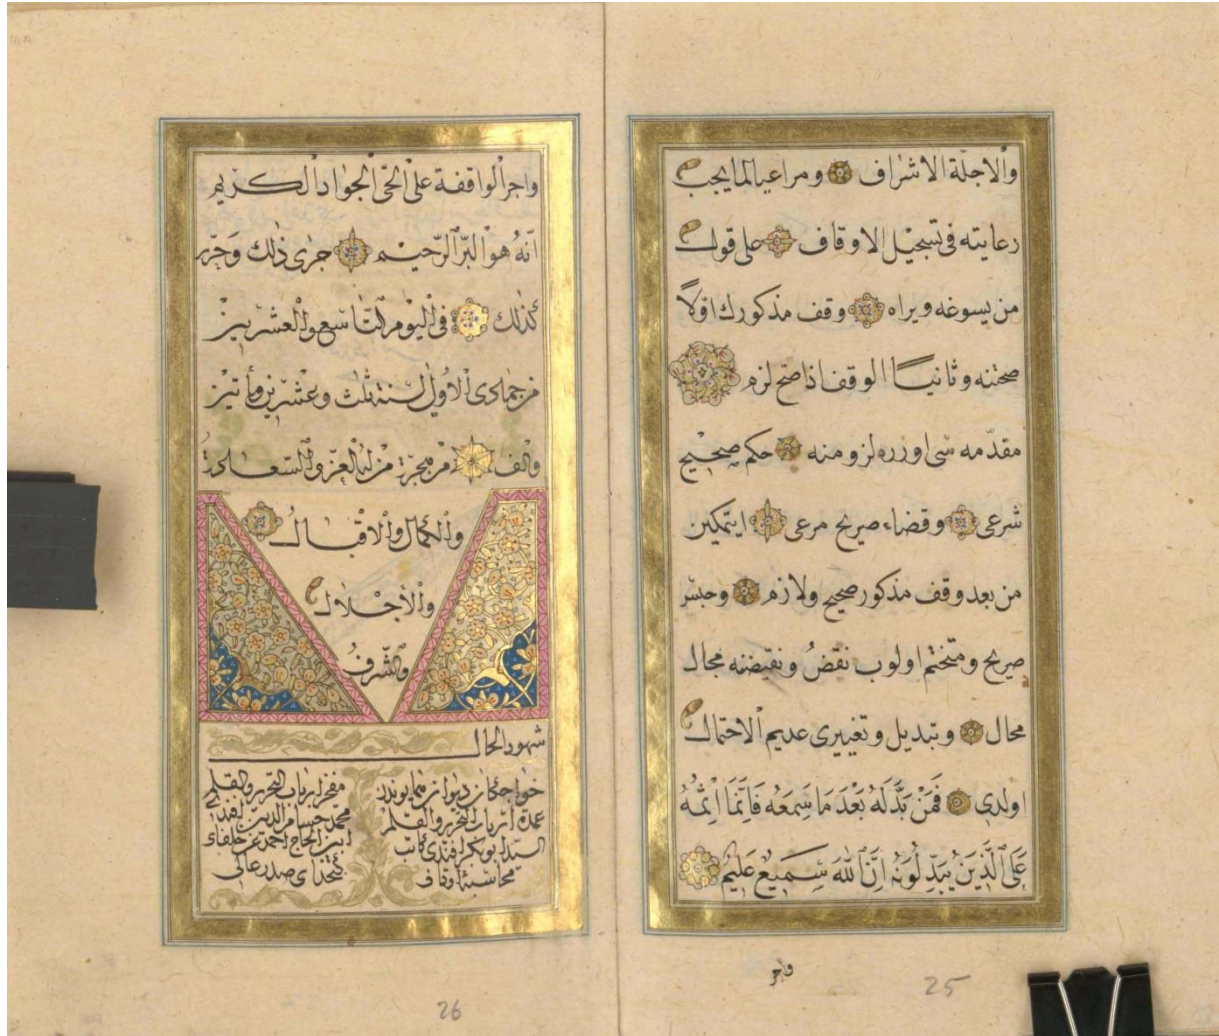 والاجلّة الاشراف ومراعيا لما يجب
رعايته فى تسجيل الاوقاف على قول
من يسوغه ويراه وقف مذكورك اوّلاً
صحتنه وثانيــاً الوقف اذا صح لزم
مقدّمه سى اوزره لزومنه حكم صحيح
شرعى وقضاء صريح مرعى ايتمكين
من بعد وقف مذكور صحيح ولازم وحبس
صريح ومتحتم اولوب نقضُ ونقيضنه مجال
محال وتبديل وتغييرى عديم الاحتمال
اولدى فَمَنْ بَدَّلَهُ بَعْدَ مَا سَمِعَهُ فَاِنَّمَا اِثْمُهُ
عَلَى ٱلَّذِينَ يُبَدِّلُونَهُ اِنَّ ٱللّٰهَ سَمِيعٌ عَلِيمٌ
واجر
25
واجر الواقفة على الحىّ الجواد الكريم
انّهُ هو البرّ الرّحيم جرى ذٰلك وَحُرّر
كذلك فى اليوم التاسع والعشرين
من جمادى الاولى لسنة ثلث وعشرين ومأتين
والف من هجرة من له العزّ والسّعادة
والكمال والاقبال
والأجْلال
والشّرفُ
شهود الحال
خواجكان ديوان همايوندن
عمدة ارباب التحرير والقلم
السيّد ابوبكر افندى كاتب
محاسبۀ اوقاف
مفخر ارباب التحرير والقلم
محمد حسام الدين افندى
ابن الحاج احمد عن خلفاء
كتخداى صدر عالى
26